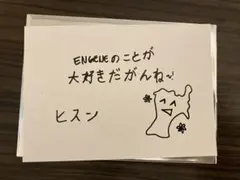 ENGENEのことが
大好きだがんね〜!
ヒスン